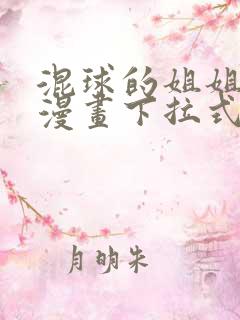 混球的姐姐
漫畫下拉式
月明朱